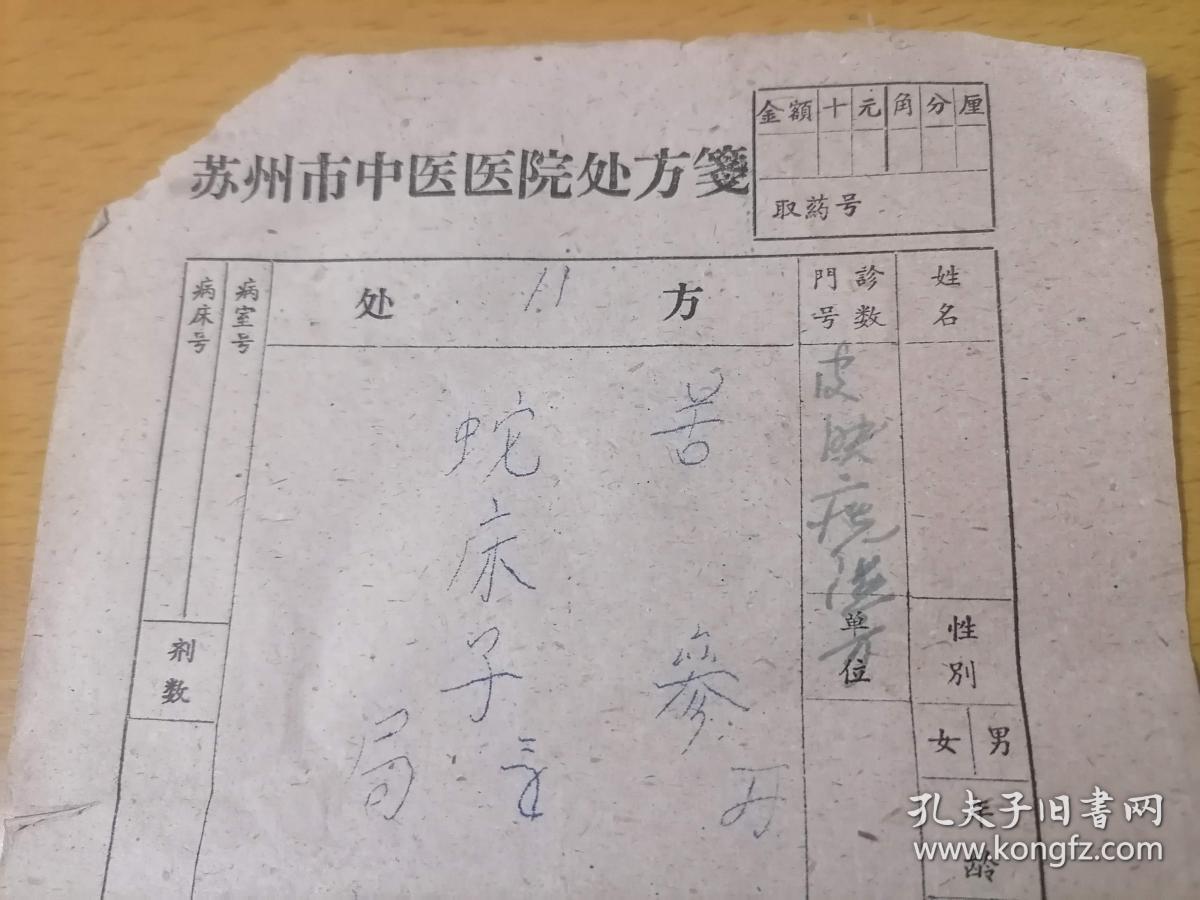 苏州市中医医院处方箋
金額 十 元 角 分 厘
取药号
姓名
性別
女 男
年齡
門診号数
皮肤
方
单位
处 11 方
苦参
蛇床子
局
病室号
病床号
剂数
孔夫子旧书网
www.kongfz.com